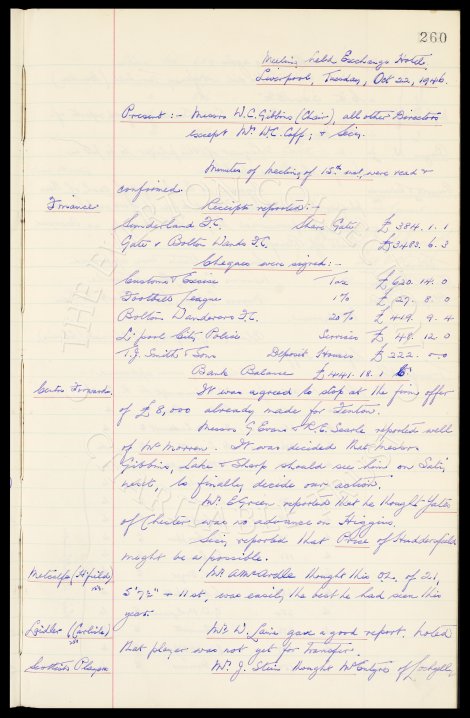 260
Meeting held Exchange Hotel,
Liverpool, Tuesday, Oct 22, 1946.
Present :- Messrs W.C. Gibbins (Chair), all other Directors
except Mr W.C. Cuff; & Secy.
Minutes of meeting of 15th inst, were read &
confirmed.
Finance Receipts reported:-
Sunderland F.C. Share Gate £ 3814. 1. 1
Gate v Bolton Wands F.C. £3483. 6. 3
Cheques were signed:-
Customs & Excise Tax £ 620. 14. 0
Football League 1% £ 29. 8. 0
Bolton Wanderers F.C. 20% £ 419. 9. 4
L'pool City Police Services £ 48. 12. 0
T.J. Smith & Sons Deposit Houses £ 222. 0. 0
Bank Balance £ 4141. 18. 1
Centre Forwards. It was agreed to stop at the firm offer
of £8,000 already made for Fenton.
Messrs G. Evans & R.E. Searle reported well
of Mr Morran. It was decided that Messrs
Gibbins, Lake & Sharp should see him on Satdy
next, to finally decide our action.
Mr. E. Green reported that he thought Yates
of Chester was no advance on Higgins.
Secy reported that Price of Huddersfield
might be a possible.
Metcalfe (H'field) Mr. A. McArdle thought this O.L. of 21,
5' 7½" & 11 st, was easily the best he had seen this
year.
Laidler (Carlisle) Mr. W. Lain gave a good report. Noted
that player was not yet for transfer.
Scottish Players Mr. J. Stein thought McIntyre of Lochgelly